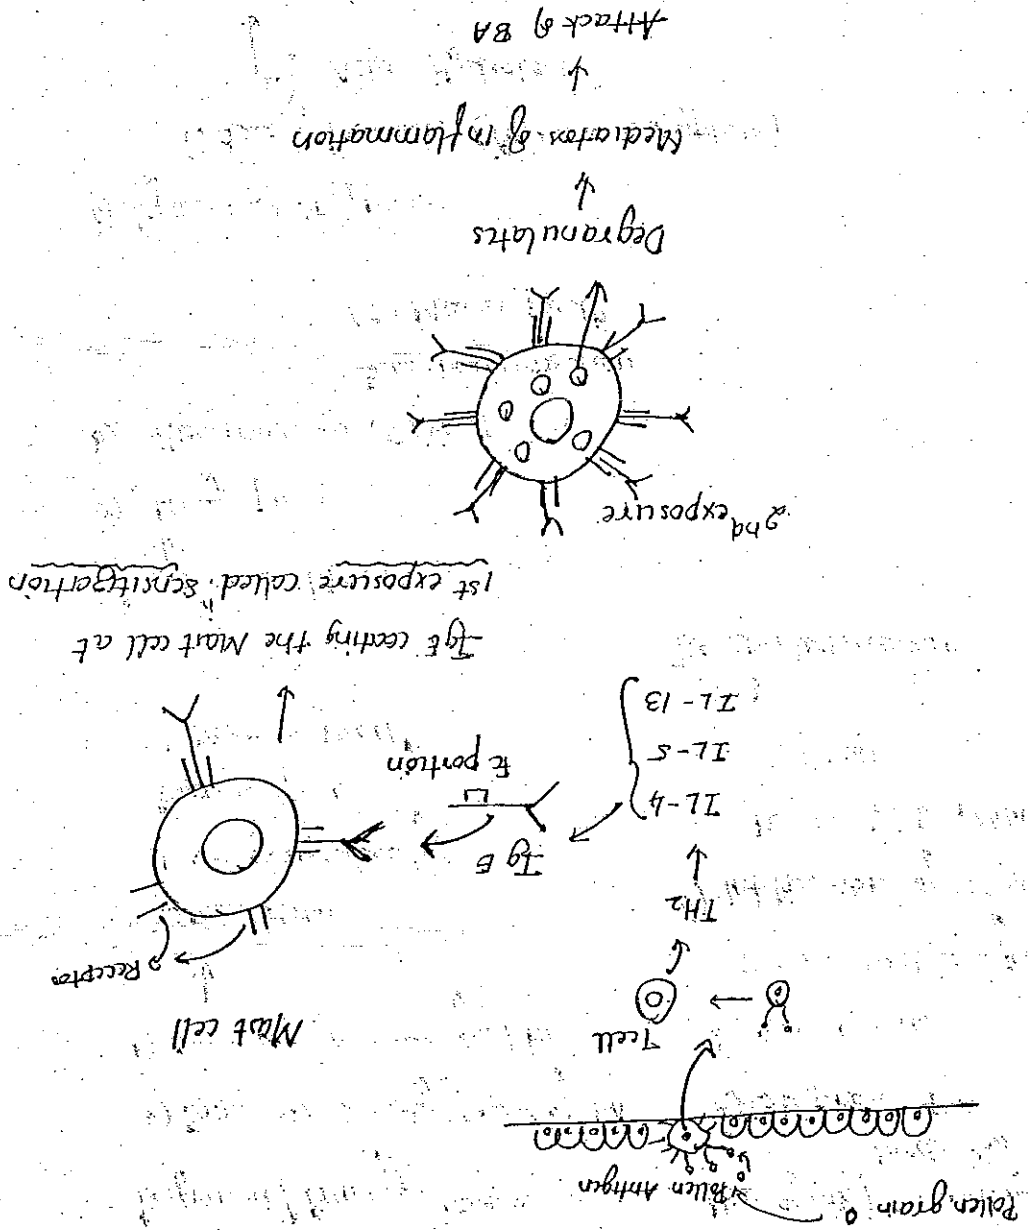 Pollen grain
Pollen Antigen
T cell
Mast cell
Receptor
TH2
IgE
IL-4
IL-5
IL-13
Fc portion
IgE coating the Mast cell at
1st exposure called "sensitization
2nd exposure
Degranulates
Mediators of inflammation
Attack of BA